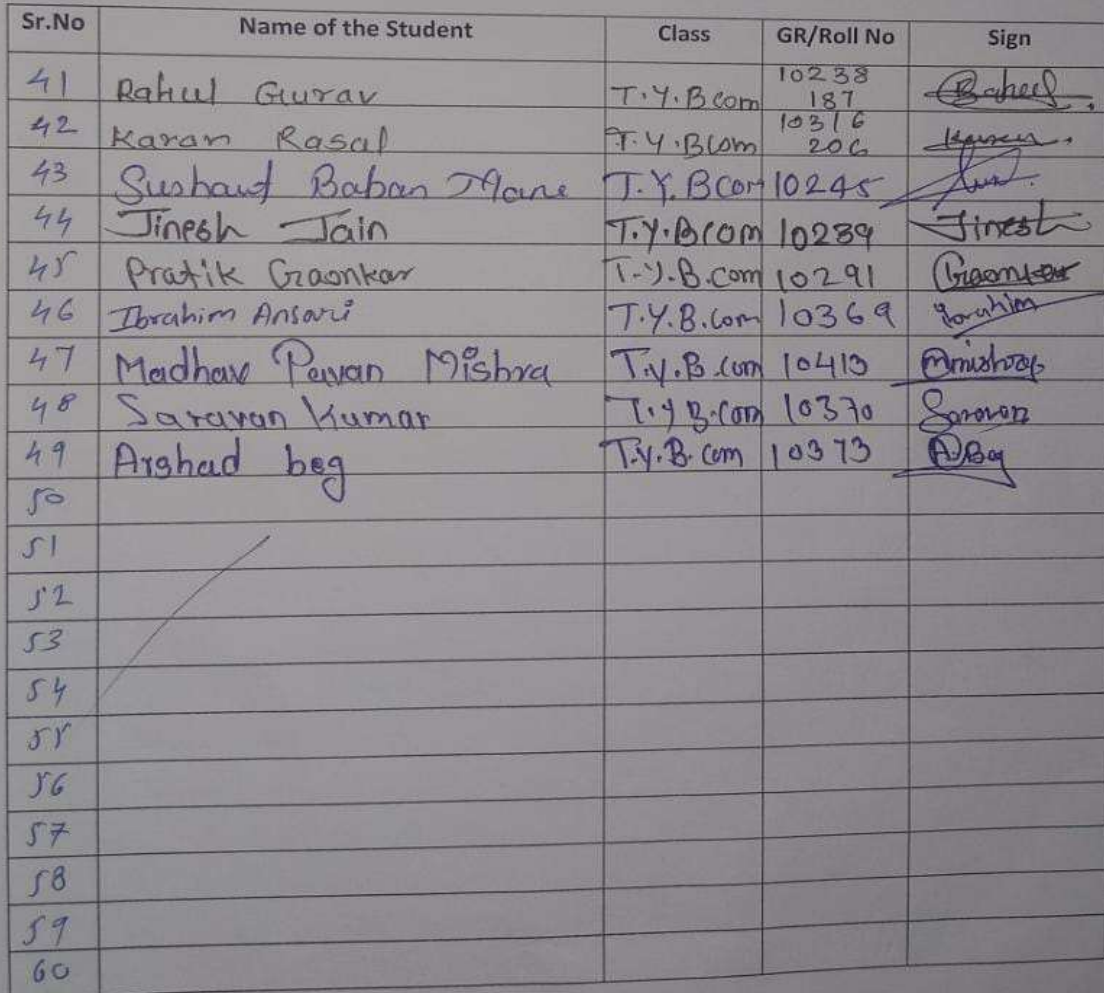 Sr.No Name of the Student Class GR/Roll No Sign
41 Rahul Gurav T.Y.Bcom 10238 187 Rahul
42 Karan Rasal T.Y.Bcom 10316 206 Karan
43 Sushant Baban Mane T.Y.BCom 10245
44 Jinesh Jain T.Y.B com 10289 Jinesh
45 Pratik Gaonkar T.Y.B.com 10291 Gaonkar
46 Ibrahim Ansari T.Y.B.com 10369 Ibrahim
47 Madhav Pavan Mishra T.y.B.com 10413
48 Saravan Kumar T.y B.com 10370 Saravan
49 Arshad beg T.y.B.com 10373 ABeg
50
51
52
53
54
55
56
57
58
59
60